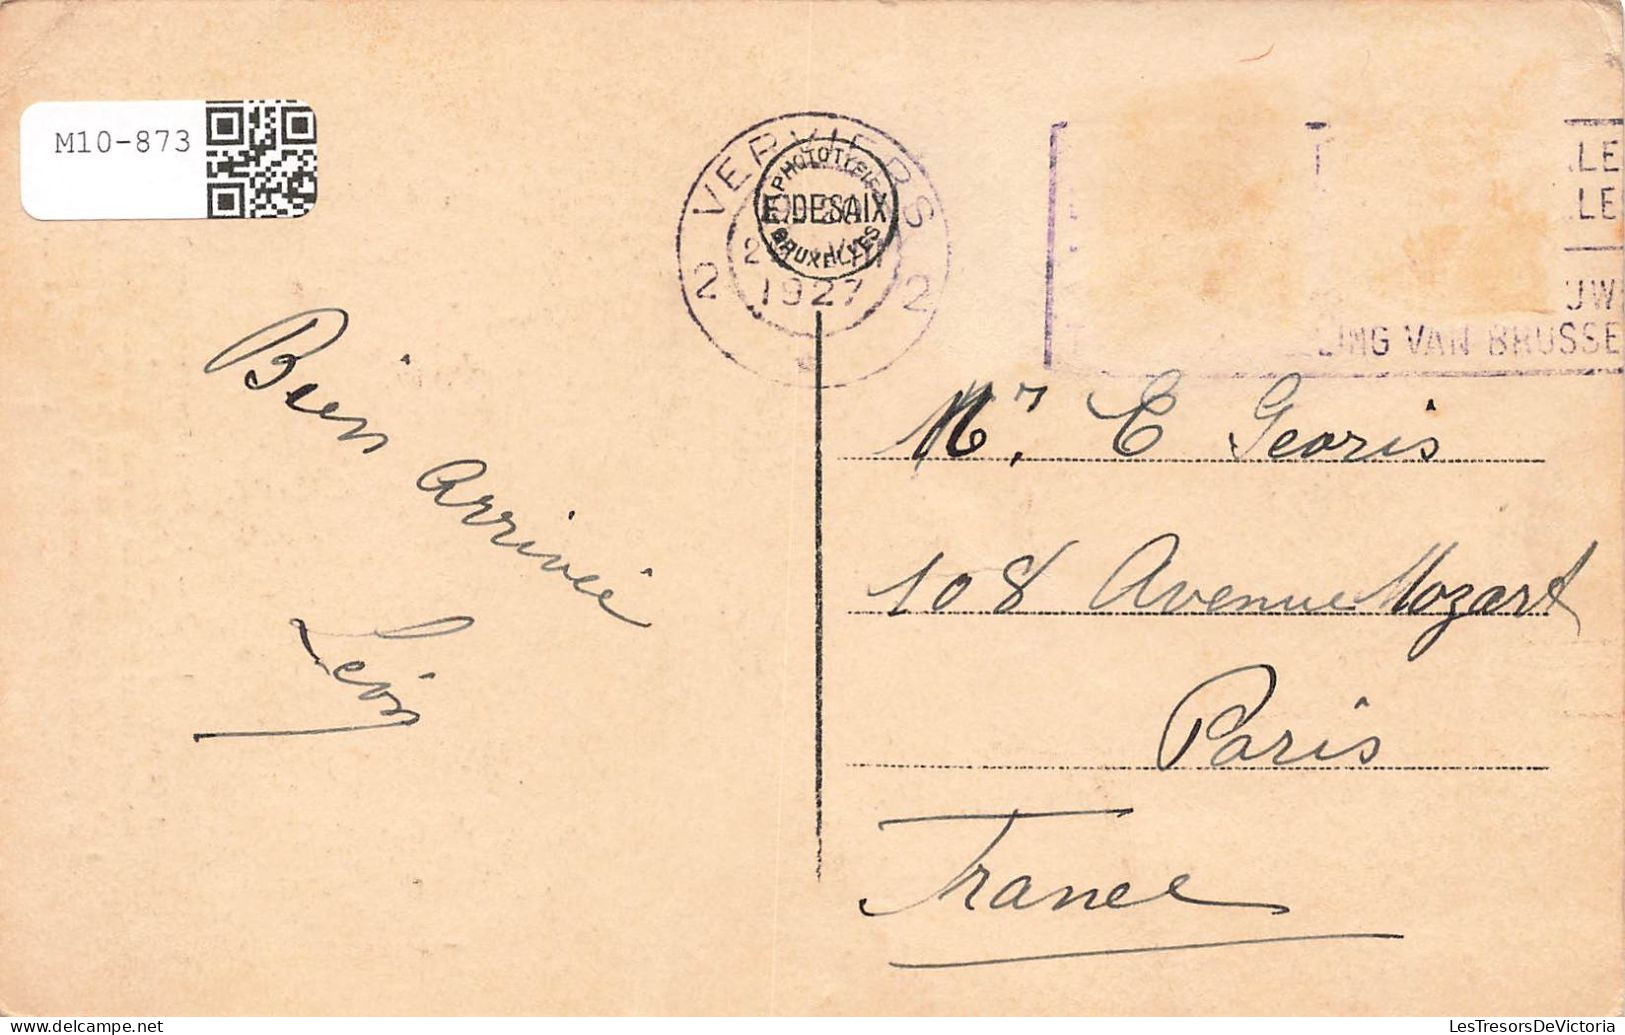 M10-873
VERVIERS
2 2
1927
PHOTOTYPIE
E. DESAIX
BRUXELLES
LING VAN BRUSSE
Bien arrivée
Léon
Mr. E Georis
108 Avenue Mozart
Paris
France
LesTresorsDeVictoria